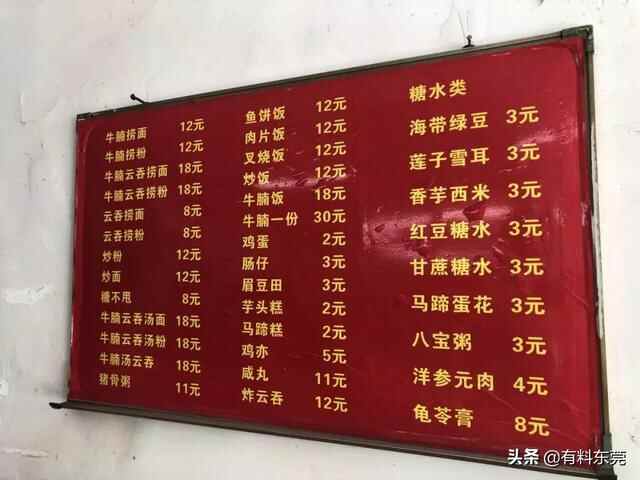 牛腩捞面 12元
牛腩捞粉 12元
牛腩云吞捞面 18元
牛腩云吞捞粉 18元
云吞捞面 8元
云吞捞粉 8元
炒粉 12元
炒面 12元
糖不甩 8元
牛腩云吞汤面 18元
牛腩云吞汤粉 18元
牛腩汤云吞 18元
猪骨粥 11元
鱼饼饭 12元
肉片饭 12元
叉烧饭 12元
炒饭 12元
牛腩饭 18元
牛腩一份 30元
鸡蛋 2元
肠仔 3元
眉豆田 3元
芋头糕 2元
马蹄糕 2元
鸡亦 5元
咸丸 11元
炸云吞 12元
糖水类
海带绿豆 3元
莲子雪耳 3元
香芋西米 3元
红豆糖水 3元
甘蔗糖水 3元
马蹄蛋花 3元
八宝粥 3元
洋参元肉 4元
龟苓膏 8元
头条 @有料东莞